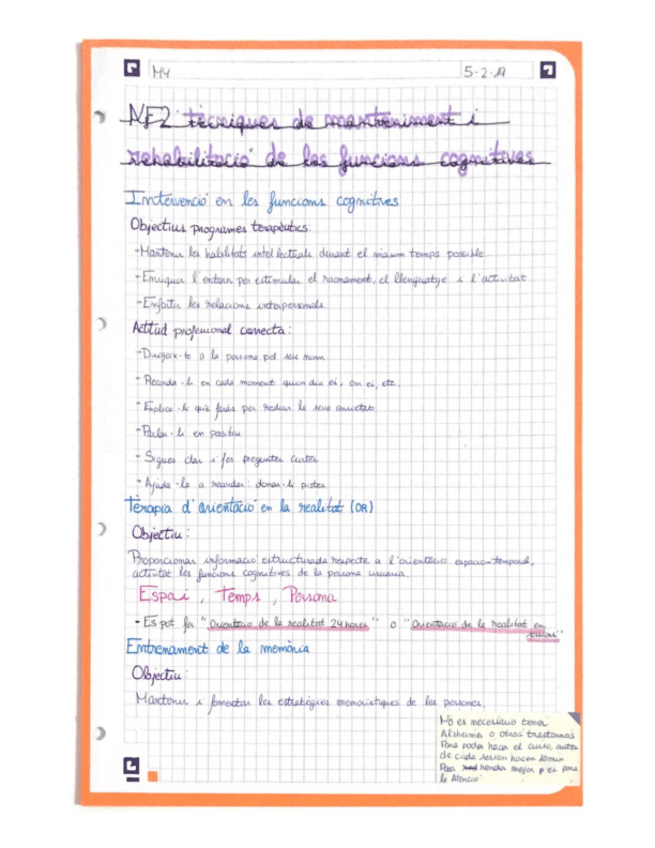 M4
5-2-19
NF2 tècniques de manteniment i
rehabilitació de les funcions cognitives
Intervenció en les funcions cognitives
Objectius programes terapèutics:
-Mantenir les habilitats intel·lectuals durant el màxim temps possible
-Enriquir l'entorn per estimular el raonament, el llenguatje i l'activitat
-Enfortir les relacions interpersonals
Actitud professional correcta:
-Dirigeix-te a la persona pel seu nom
-Recorda-li en cada moment quin dia és, on és, etc.
-Explica-li què faràs per reduir la seva ansietat
-Parlar-li en positiu
-Sigues clar i fer preguntes curtes
-Ajuda-la a recordar: donar-li pistes
Teràpia d'orientació en la realitat (OR)
Objectiu:
Proporcionar informació estructurada respecte a l'orientació espacio-temporal,
activitat les funcions cognitives de la persona usuaria.
Espai, Temps, Persona
-Es pot fer "Orientació de la realitat 24 hores" o "Orientació de la realitat en
sessions"
Entrenament de la memòria
Objectiu:
Mantenir i fomentar les estratègies memoristiques de les persones.
No es necesario tener
Alzheimer o otros trastornos
Para poder hacer el curso, antes
de cada sesion hacen
Para rendir mejor p'es para
la Atenció